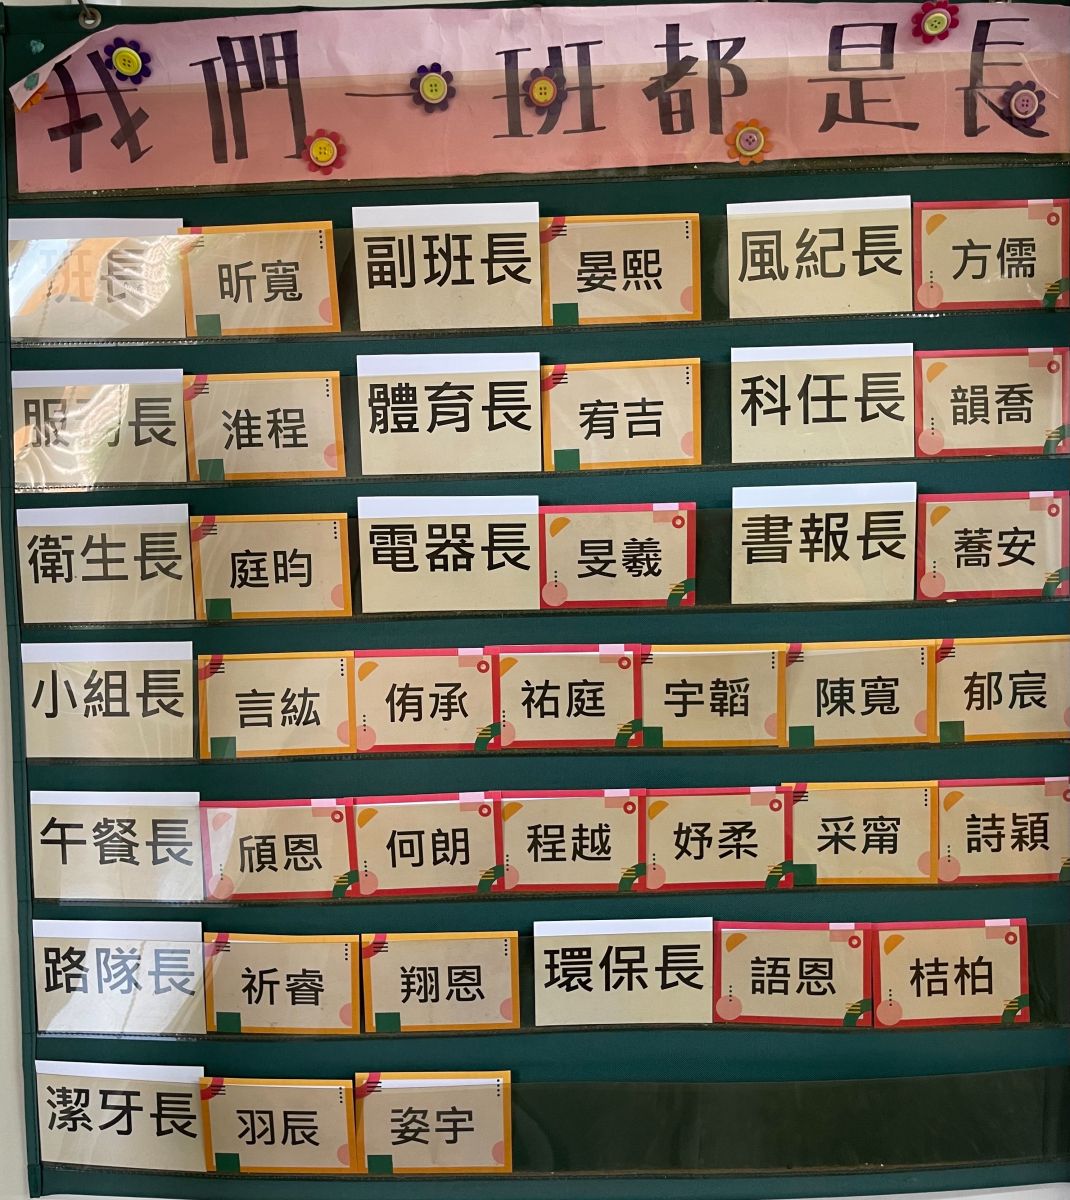 我們一班都是長
班長 昕寬 副班長 晏熙 風紀長 方儒
服務長 淮程 體育長 宥吉 科任長 韻喬
衛生長 庭昀 電器長 旻羲 書報長 蕎安
小組長 言紘 侑承 祐庭 宇韜 陳寬 郁宸
午餐長 頎恩 何朗 程越 妤柔 采甯 詩穎
路隊長 祈睿 翔恩 環保長 語恩 桔柏
潔牙長 羽辰 姿宇